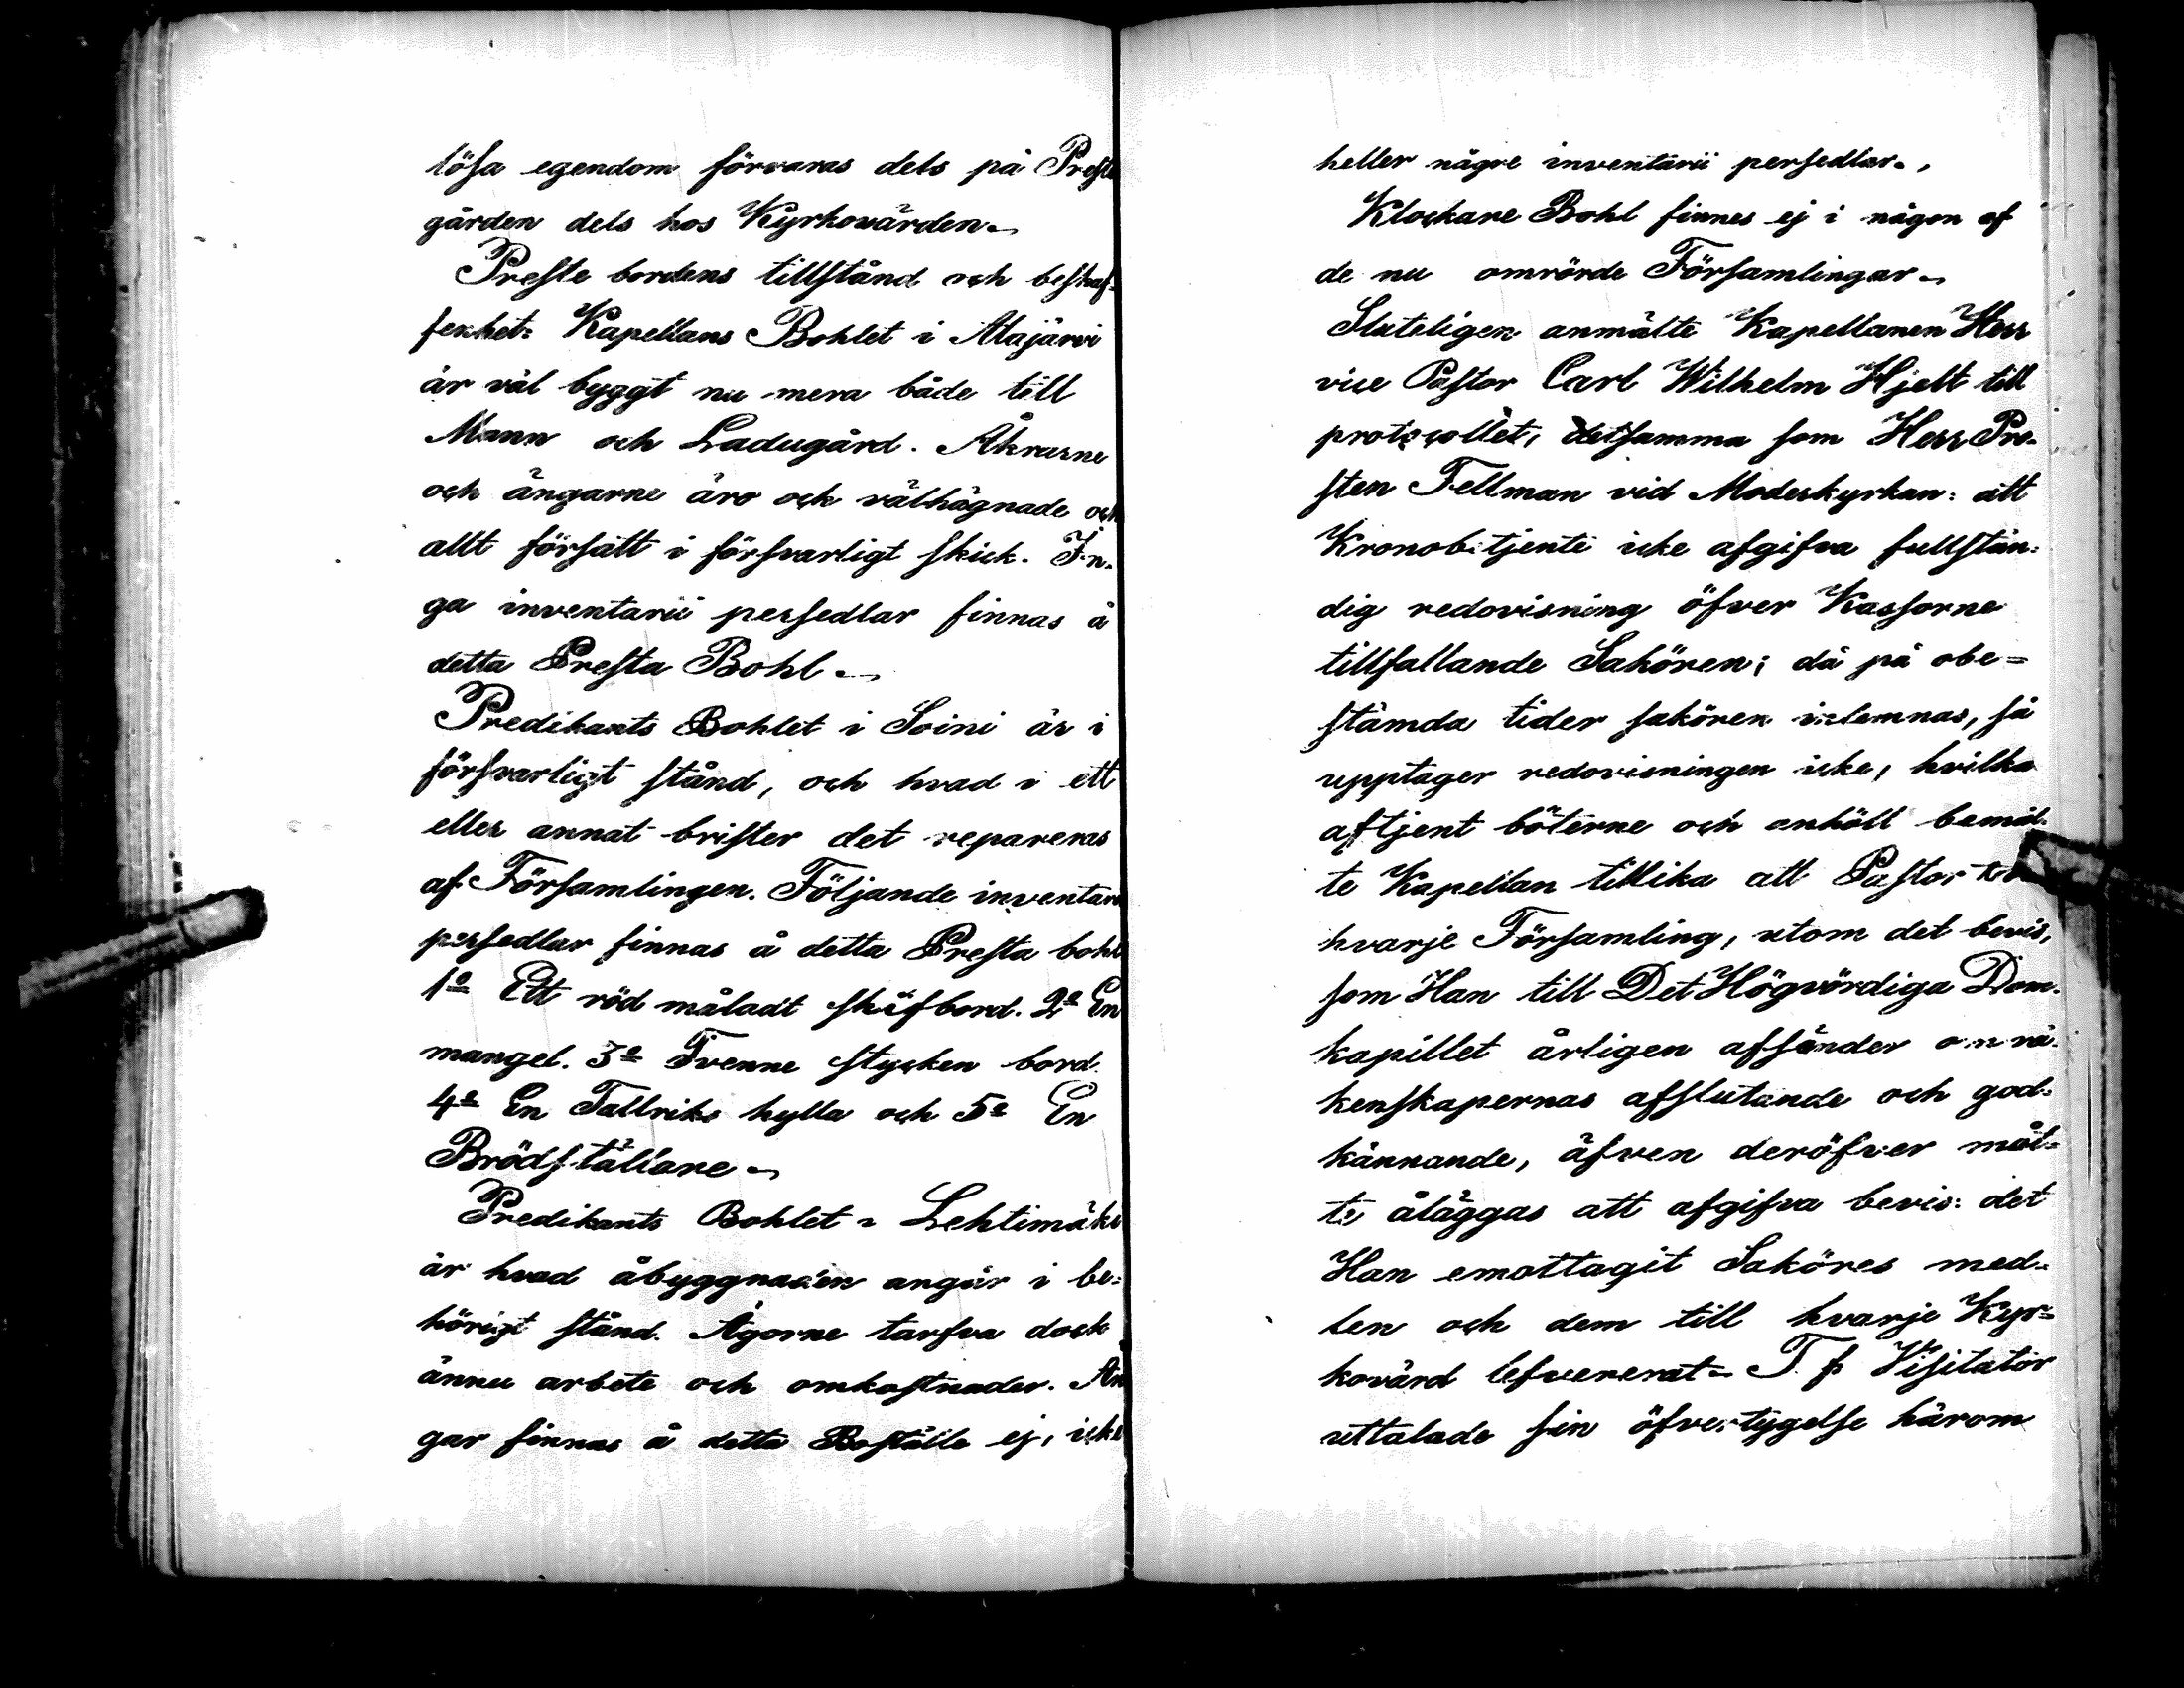 lösa egendom förvaras dels på Preste
gården dels hos Kyrkovärden.
Preste bordens tillstånd och beskaf-
fenhet: Kapellans Bohlet i Alajärvi
är väl byggt nu mera både till
Mann och Ladugård. Åkrarne
och ängarne äro och välhägnade och
allt försatt i försvarligt skick. In-
ga inventarii persedlar finnas å
detta Presta Bohl.
Predikants Bohlet i Soini är i
försvarligt stånd, och hvad i ett
eller annat brister det repareras
af Församlingen. Följande inventarii
persedlar finnas å detta Presta bohl
1o Ett röd måladt skåfbord. 2o En
mangel. 3o Tvenne stycken bord.
4o En Tallriks hylla och 5o En
Brödställare.
Predikants Bohlet i Lehtimäki
är hvad åbyggnaden angår i be-
hörigt stånd. Ägorne tarfva dock
ännu arbete och omkostnader. Än
gar finnas å detta Boställe ej, icke
heller någre inventarii persedlar.,
Klockare Bohl finnes ej i någon af
de nu omrörde Församlingar.
Sluteligen anmälte Kapellanen Herr
vice Pastor Carl Wilhelm Hjelt till
protocollet, detsamma som Herr Pro-
sten Fellman vid Moderkyrkan: att
Kronobetjente icke afgifva fullstän-
dig redovisning öfver Kassorne
tillfallande Sakören; då på obe-
stämda tider sakören inlemnas, så
upptager redovisningen icke, hvilka
aftjent böterne och anhöll bemäl-
te Kapellan tillika att Pastor
hvarje Församling, utom det bevis,
som Han till Det Högvördiga Dom-
kapillet årligen afsänder om rä-
kenskapernas afslutande och god-
kännande, äfven deröfver måt-
te åläggas att afgifva bevis: det
Han emottagit Saköres med-
len och dem till hvarje Kyr-
kovärd lefvererat. T. f. Visitator
uttalade sin öfvertygelse härom